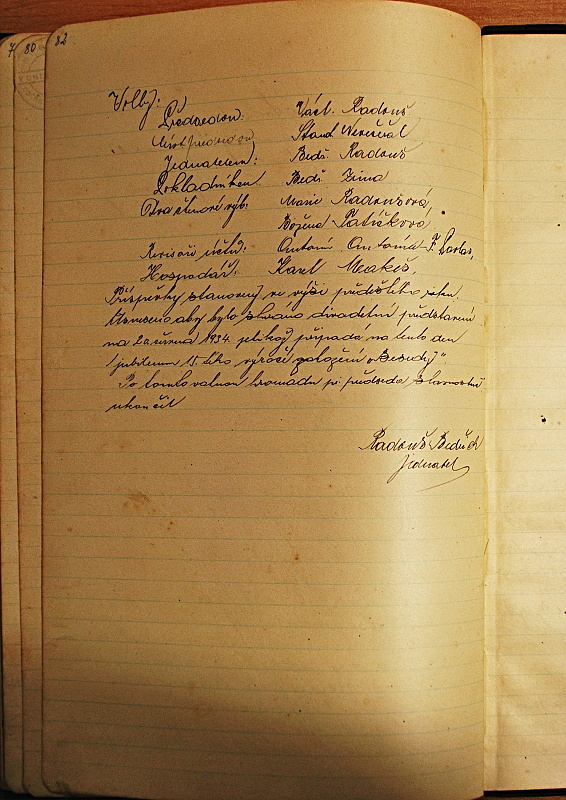 7 80 82
Volby:
Předsedou: Václ. Radouš
Míst. předsedou Stand. Neveřečal
Jednatelem: Bedř. Radouš
Pokladníkem Bedř. Zima
Dva členové výb: Marie Radoušová,
Božena Patičková,
Revisoři účtů: Antonín F.
Hospodář: Karel
Příspěvky stanoveny ve výši předešlého
Usneseno aby bylo divadelní představení
na 20. června 1934 jelikož připadá na tento den
"jubileum 15. leté výročí založení "Besedy"
Po tomto valnou hromadu p. předseda slavnostně
ukončil
Radouš Bedřich
Jednatel